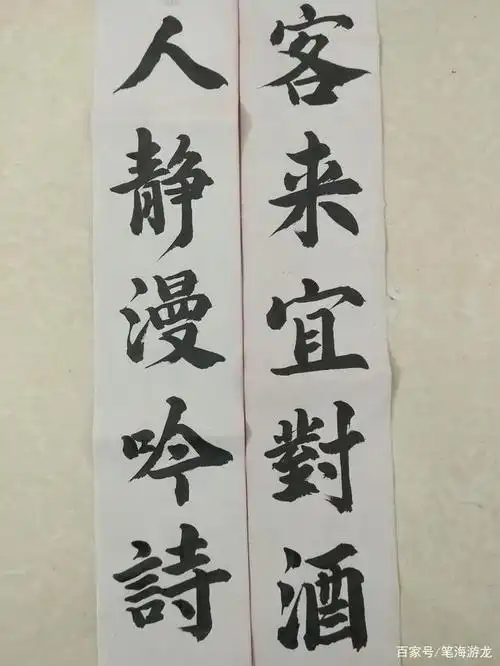 客来宜對酒
人静漫吟詩
百家号/笔海游龙